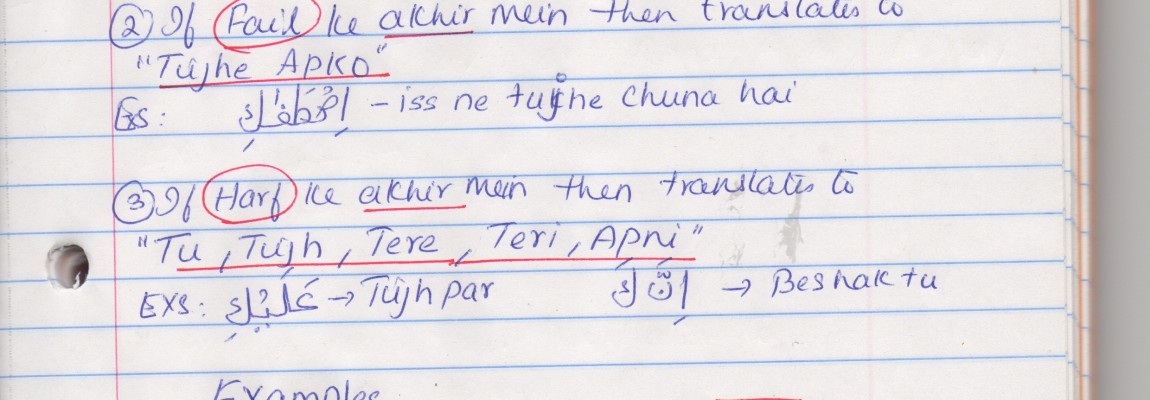 ② If Fail ke akhir mein then translates to
"Tujhe Apko"
Exs: اِصْطَفٰىكِ – iss ne tujhe chuna hai
③ If Harf ke akhir mein then translates to
"Tu, Tujh, Tere, Teri, Apni"
EXS: عَلَيْكِ → Tujh par اِنَّكَ → Beshak tu
Examples